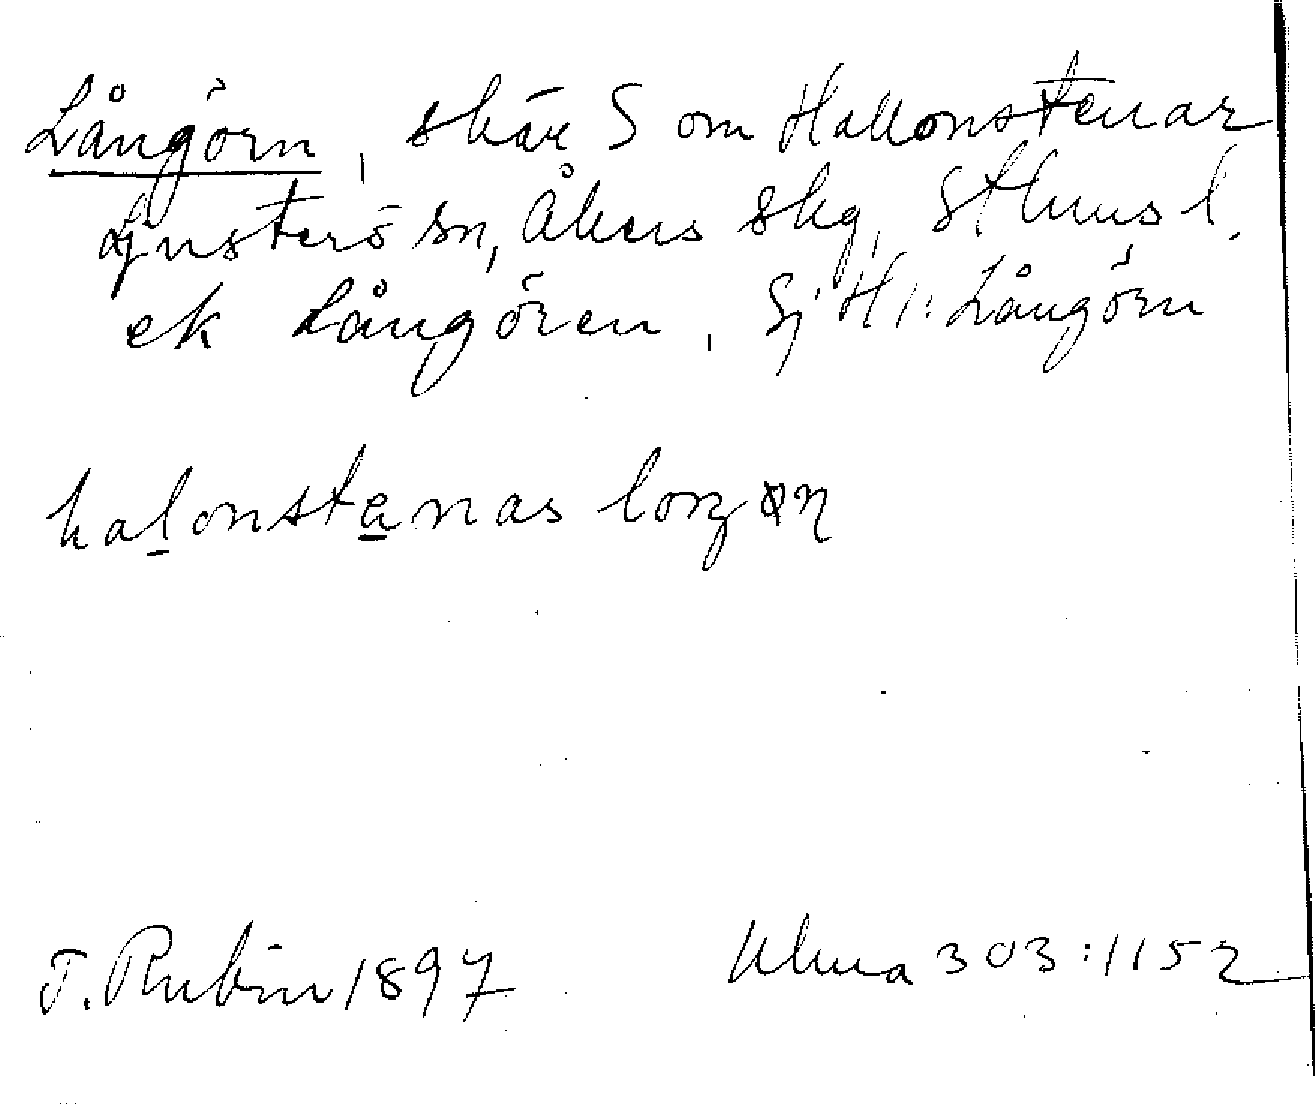 Långörn, skär S om Hallonstenar
Ljusterö sn, Åkers skg, Sthms l.
ek Långören, Sj H 1: Långörn
halonstenas
T. Rubin 1897
Ulma 303:1152